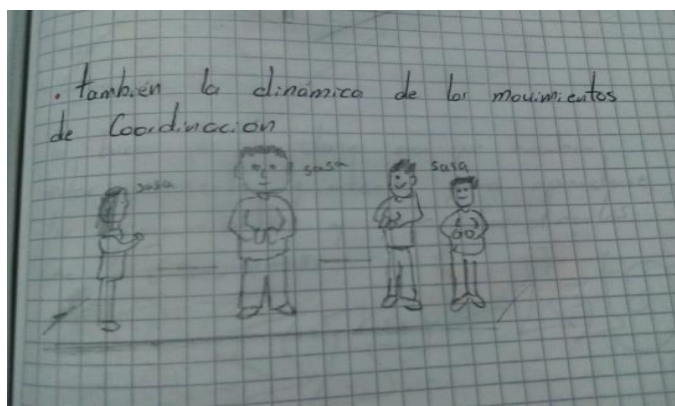 . también la dinámica de los movimientos
de Coordinación
susa
susa
susa